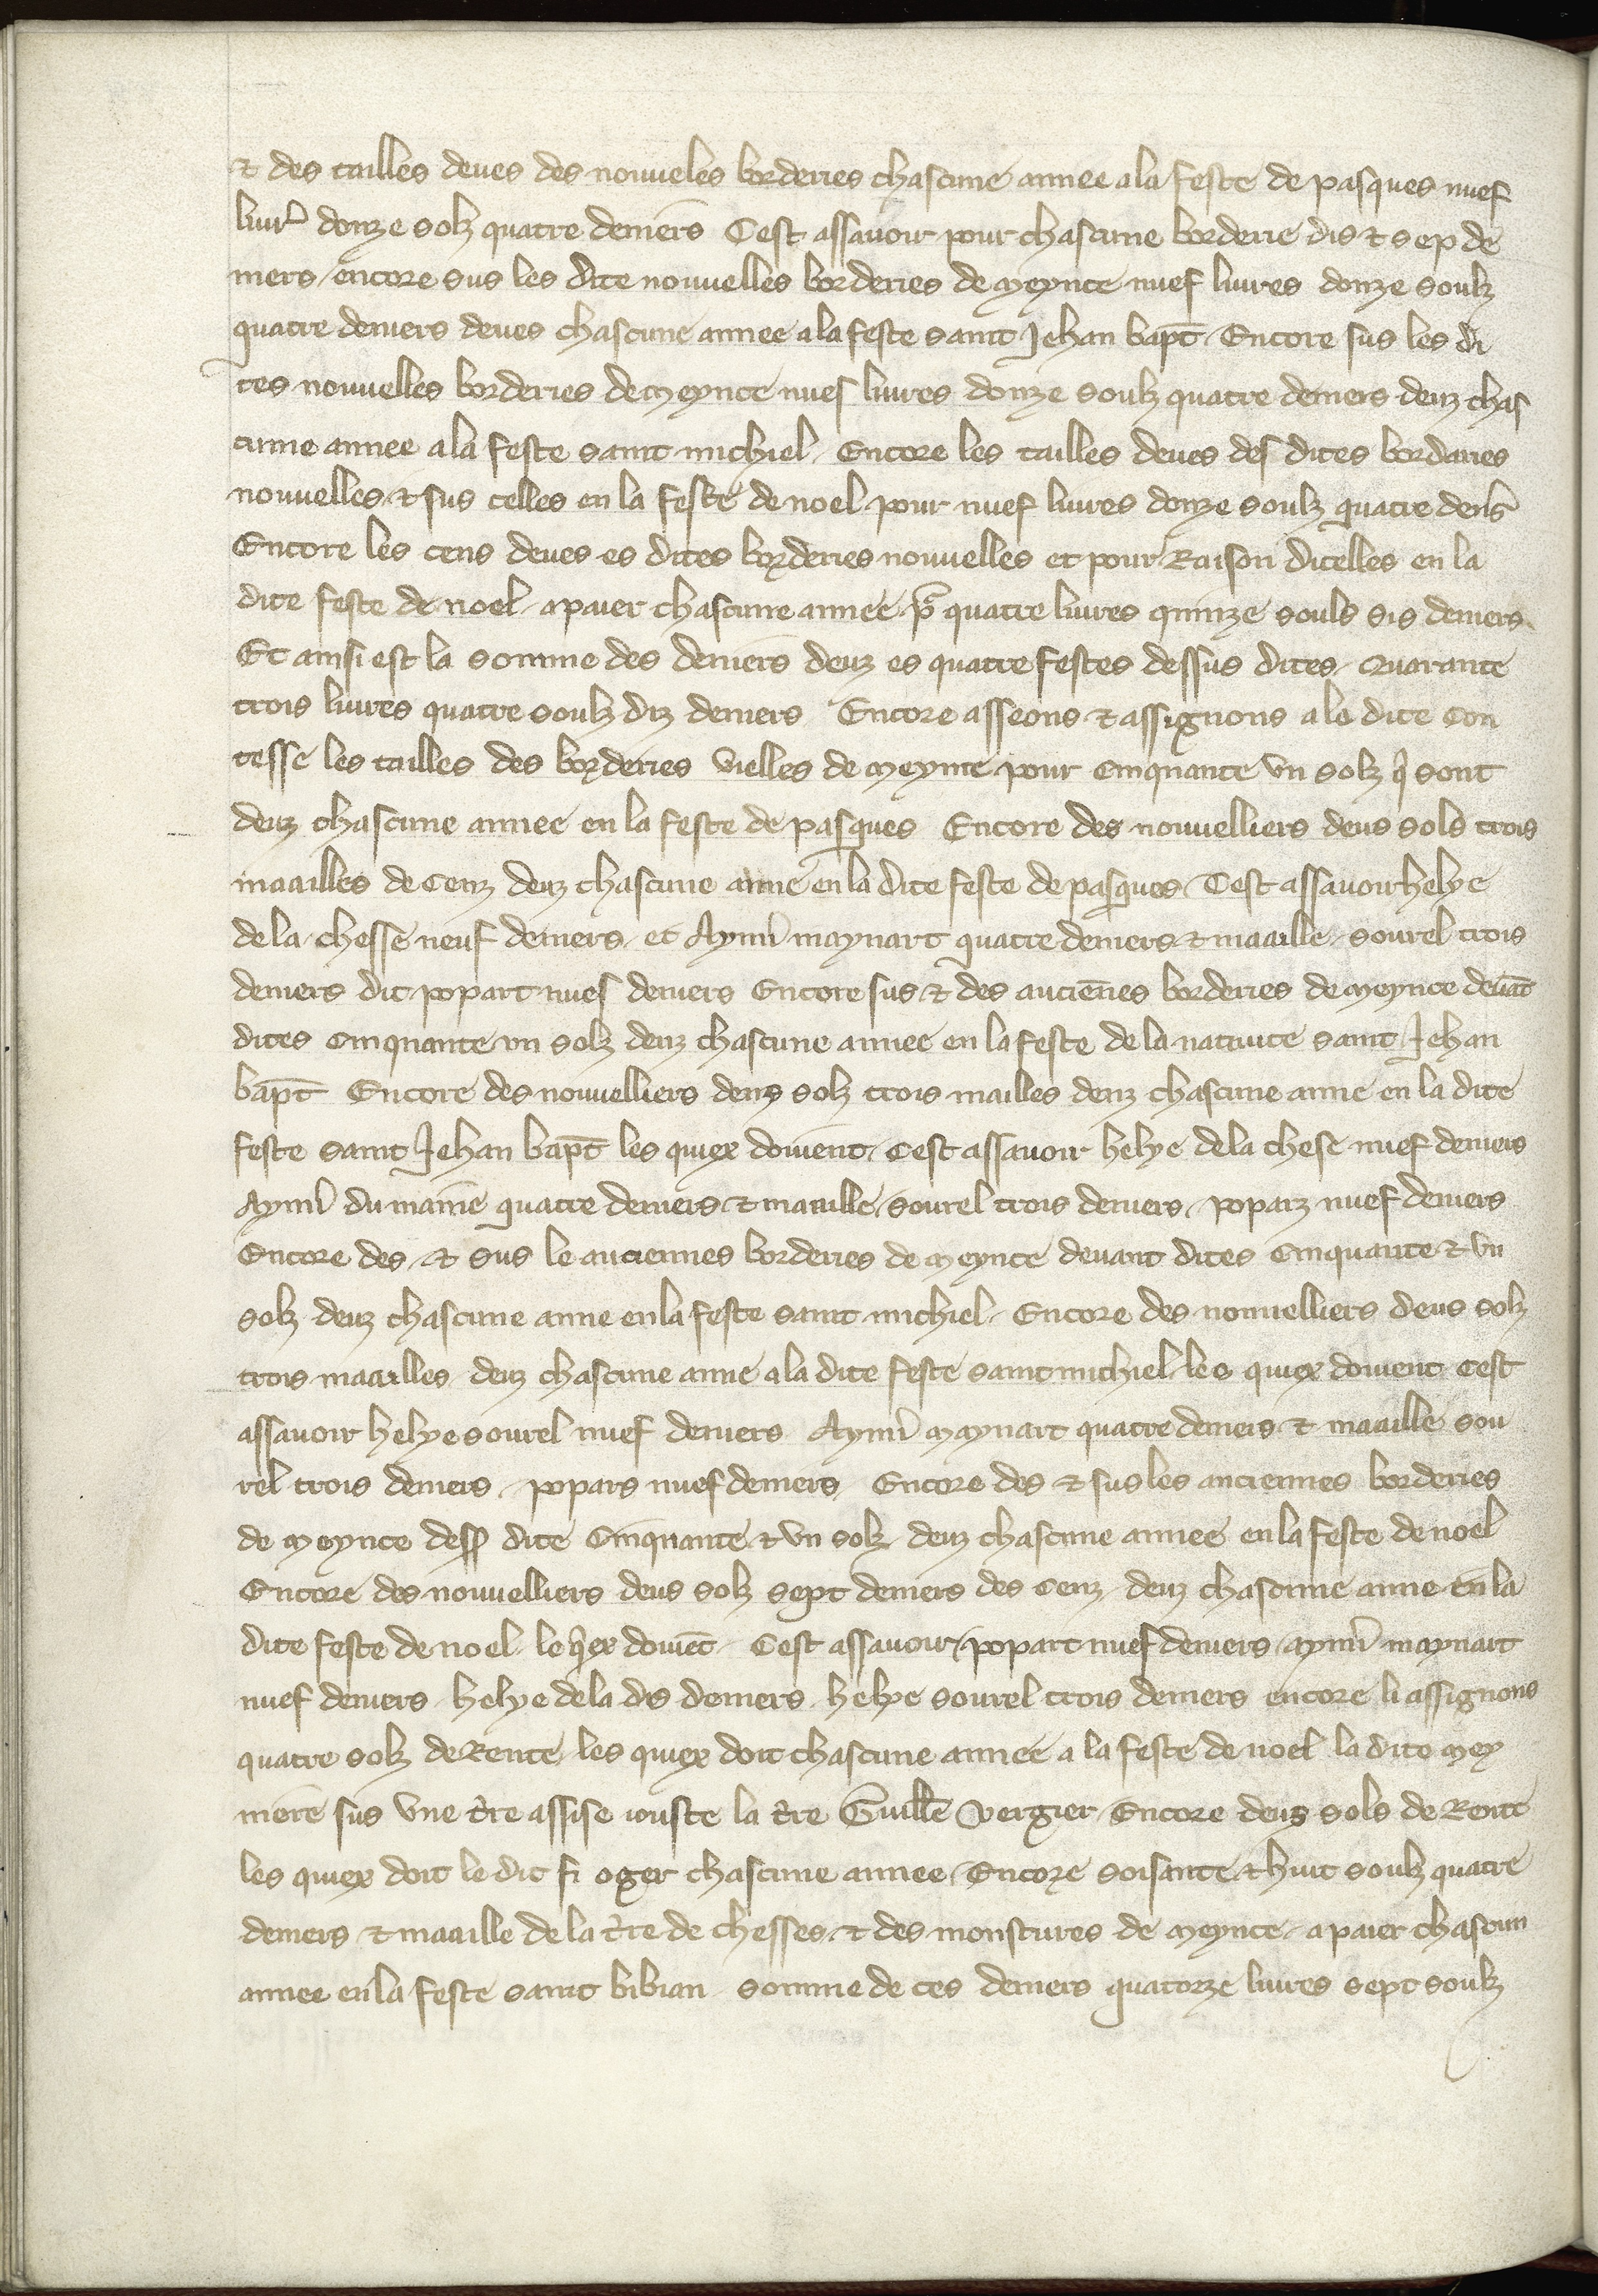 ⁊ des tailles deues des nouueles borderies chascune annee a la feste de pasques nuef
liur̉ douze solz quatre deniers Cest assauoir pour chascune borderie dis ⁊ sep de
niers / encore sus les dite nouuelles borderies de meynte nuef liures douze soulz
quatre deniers deues chascune annee a la feste saint Jehan bapt̄ / Encore sus les di
tes nouuelles borderies de meynte nues liures douze soulz quatre deniers deuz chas
cune annee a la feste saint michiel / Encore les tailles deues des dites bordaries
nouuelles ⁊ sus celles en la feste de noel pour nuef liures douze soulz quatre den̉s
Encore les cens deues es dites borderies nouuelles et pour Raison dicelles en la
dite feste de noel / a paier chascune annee / pr̄ quatre liures quinze souls sis deniers
Et ainsi est la somme des deniers deuz es quatre festes dessus dites / Quarante
trois liures quatre soulz diz deniers Encore asseons ⁊ assignons a le dite Con
tesse les tailles des borderies vielles de meynte pour cinquante vn solz q̉ sont
deuz chascune annee en la feste de pasques Encore des nouuelliers deus sols trois
maailles de cenz deuz chascune anne en la dite feste de pasques / Cest assauoir helye
de la chesse neuf deniers / et Aymr̉ maynart quatre deniers ⁊ maaille / sourel trois
deniers dit popart nues deniers Encore sus ⁊ des anciēnes borderies de meynte deuāt
dites cinquante vn solz deuz chascune annee en la feste de la natiuite saint Jehan
bapt̄ Encore des nouuelliers deus solz trois mailles deuz chascune anne en la dite
feste saint Jehan bapt̄ les quiex doiuent / Cest assauoir helye de la chese nuef deniers
Aymr̉ du maine quatre deniers ⁊ maaille / sourel trois deniers / poparz nuef deniers
Encore des / ⁊ sus le anciennes borderies de meynte deuant dites Cinquante ⁊ vn
solz deuz chascune anne en la feste saint michiel / Encore des nouuelliers deus solz
trois maailles deuz chascune anne a la dite feste saint michiel / les quiex doiuent Cest
assauoir helye sourel nuef deniers Aymr̉ maynart quatre deniers ⁊ maaille sou
rel trois deniers / popars nuef deniers Encore des ⁊ sus les anciennes borderies
de meynte dess⁹ dite Cinquante ⁊ vn solz deuz chascune annee en la feste de noel
Encore des nouuelliers deus solz sept deniers des cenz / deuz chascune anne en la
dite feste de noel / le q̉ex doiuēt / Cest assauoir / popart nuef deniers / aymr̉ maynart
nuef deniers / helye de la dis deniers / helye sourel trois deniers encore li assignons
quatre solz de Rente / les quiex doit chascune annee a la feste de noel la dite mey
mere sus vne t̉re assise iouste la t̉re Guill̄e vergier / Encore deus sols de Rent
les quiex doit le dit fi oger chascune annee / Encore soisante ⁊ huit soulz quatre
deniers ⁊ maaille de la t̉re de chesses ⁊ des monstures de meynte / a paier chascun
annee en la feste saint bibian somme de ces deniers quatorze liures sept soulz